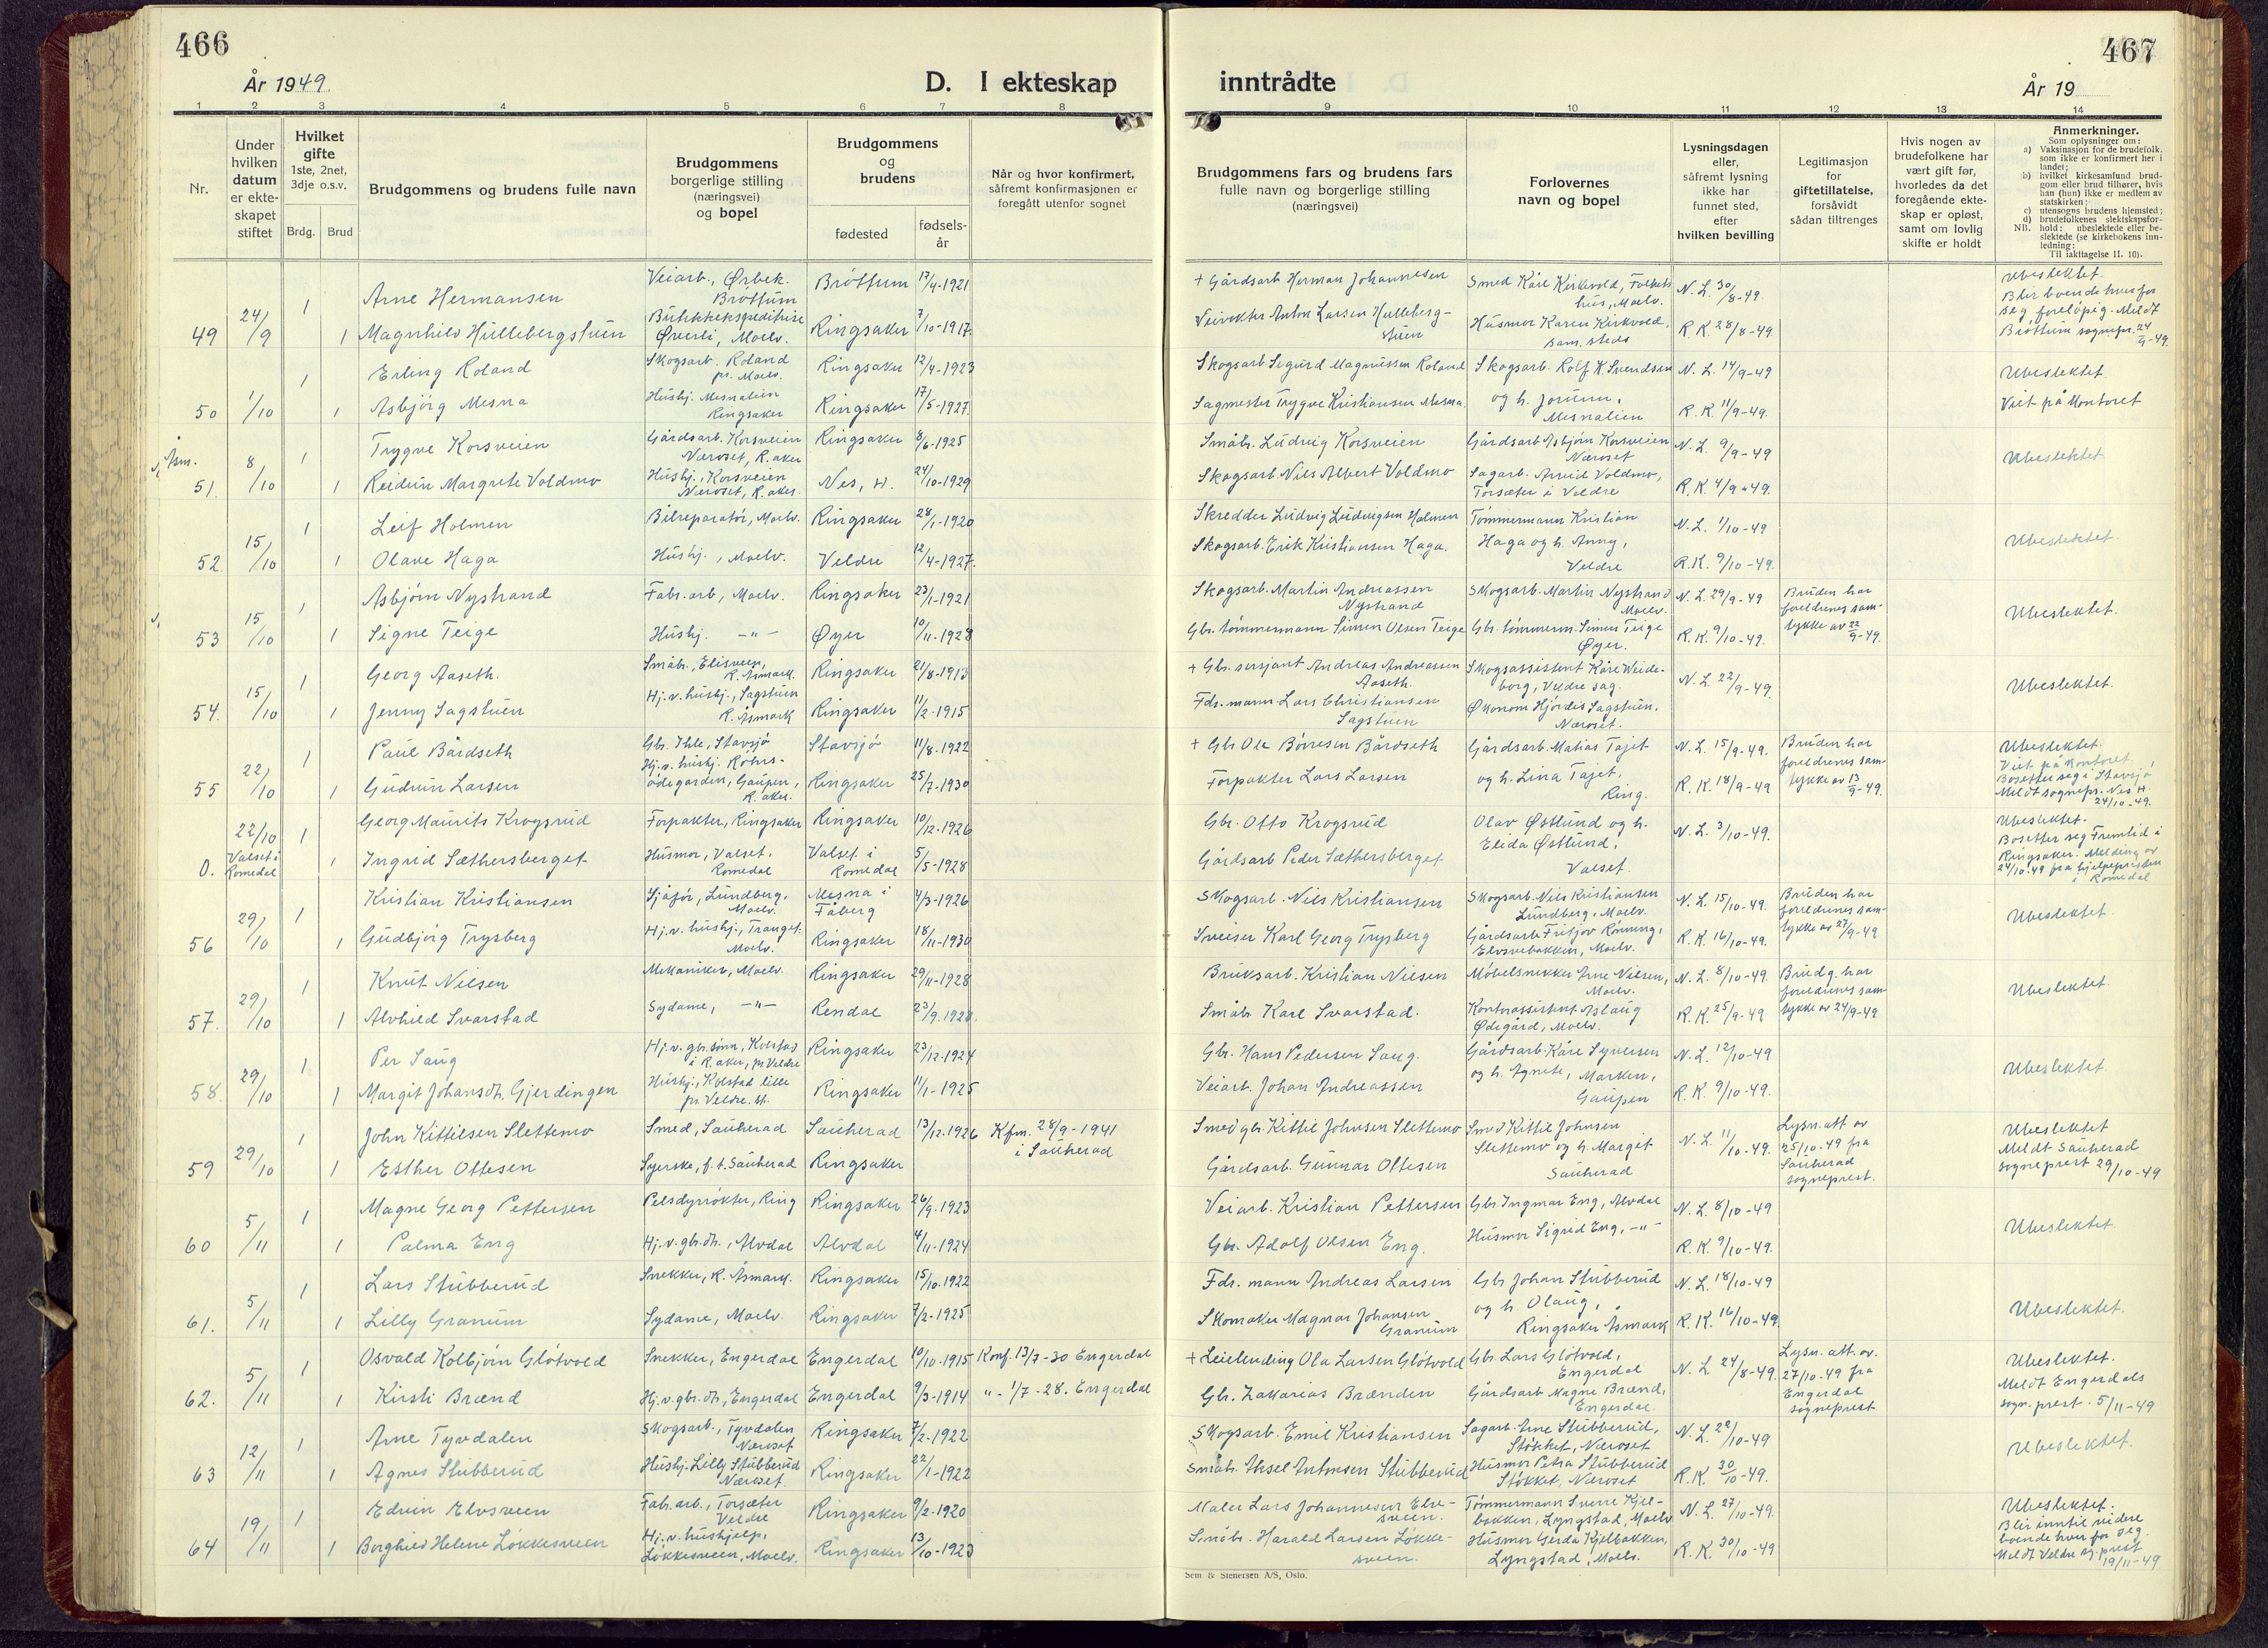 466
År 1949.
D. I ekteskap
inntrådte
467
År 19
1 2 3 4 5 6 7 8
9 10 11 12 13 14
Nr.
Under hvilken datum er ekteskapet stiftet
Hvilket gifte 1ste, 2net, 3dje o.s.v.
Brdg. Brud
Brudgommens og brudens fulle navn
Brudgommens borgerlige stilling (næringsvei) og bopel
Brudgommens og brudens
fødested
fødsels-år
Når og hvor konfirmert, såfremt konfirmasjonen er foregått utenfor sognet
Brudgommens fars og brudens fars fulle navn og borgerlige stilling (næringsvei)
Forlovernes navn og bopel
Lysningsdagen eller, såfremt lysning ikke har funnet sted, efter hvilken bevilling
Legitimasjon for giftetillatelse, forsåvidt sådan tiltrenges
Hvis nogen av brudefolkene har vært gift før, hvorledes da det foregående ekteskap er opløst, samt om lovlig skifte er holdt
Anmerkninger.
Som oplysninger om:
a) Vaksinasjon for de brudefolk. som ikke er konfirmert her i landet;
b) hvilket kirkesamfund brudgom eller brud tilhører, hvis han (hun) ikke er medlem av statskirken;
c) utensogns brudens hjemsted;
d) brudefolkenes slektskapsforhold: ubeslektede eller beslektede (se kirkebokens innledning:
NB.
Til iakttagelse II. 10).
49 24/9 1 Arne Hermansen Veiarb., Ørbek. Brøttum Brøttum 17/4-1921 + Gårdsarb Herman Johannesen Smed Kåre Kirkvold, Folkets hus, Moelv. N. L. 30/8-49. Ubeslektet.
1 Magnhild Hullebergstuen Butikkekspeditrise Øverli, Moelv. Ringsaker 7/10-1917. Veivokter Anton Larsen Hullebergstuen Husmor Karen Kirkvold, sam. steds R. K. 28/8-49. Blir boende hver for seg foreløpig. Meldt Brøttum sognepr. 24/9-49.
50 1/10 1 Erling Roland Skogsarb. Roland pr. Moelv. Ringsaker 12/4-1923 Skogsarb Sigurd Magnussen Roland Skogsarb. Rolf K. Svendsen N. L. 14/9-49 Ubeslektet.
1 Asbjörg Mesna Hushj. Mesnalien Ringsaker Ringsaker 17/5-1927. Sagmester Trygve Kristiansen Mesna og h. Jorunn, Mesnalien R. K. 11/9-49. Viet på kontoret
Åsm.
51. 8/10 1 Trygve Korsveien Gårdsarb. Korsveien Næroset, R.aker Ringsaker 8/6-1925 Småbr. Ludvig Korsveien Gårdsarb Asbjørn Korsveien Næroset N. L. 9/9-49 Ubeslektet
1 Reidun Margrete Voldmo Hushj., Korsveien Næroset, R.aker. Nes, H. 24/10-1929 Skogsarb. Nils Albert Voldmo Sagarb. Arvid Voldmo, Torsæter i Veldre R. K. 4/9-49.
52. 15/10 1 Leif Holmen Bilreparatør, Moelv. Ringsaker 28/1-1920 Skredder Ludvig Ludvigsen Holmen Tømmermann Kristian N. L. 1/10-49 Ubeslektet.
1 Olave Haga Hushj., Moelv. Veldre 12/4-1927. Skogsarb. Erik Kristiansen Haga. Haga og h. Anny, Veldre R. K. 9/10-49.
53 15/10 1 Asbjørn Nystrand Fabr. arb, Moelv. Ringsaker 23/1-1921 Skogsarb. Martin Andreassen Nystrand Skogsarb. Martin Nystrand Moelv. N. L. 29/9-49 Bruden har foreldrenes samtykke av 22/9-49. Ubeslektet.
1 Signe Teige Hushj. -"- Øyer 10/11-1928 Gbr. tømmermann Simen Olsen Teige Gbr. tømmerm. Simen Teige Øyer. R. K. 9/10-49.
54. 15/10 1 Georg Aaseth. Småbr., Elisveen, R. Åsmark. Ringsaker 21/8-1913 + Gbr. sersjant Andreas Andreassen Aaseth. Skogsassistent Kåre Weideborg, Veldre sag. N. L. 22/9-49. Ubeslektet.
1 Jenny Sagstuen Hj. v. hushj., Sagstuen R. Åsmark Ringsaker 11/2-1915 Fds. mann Lars Christiansen Sagstuen Økonom Hjördis Sagstuen, Næroset.
55 22/10 1 Paul Bårdseth Gbr. Ihle, Stavsjø Stavsjø 11/8-1922 + Gbr Ole Børresen Bårdseth Gårdsarb. Matias Tajet N. L. 15/9-49. Bruden har foreldrenes samtykke av 13/9-49. Ubeslektet. Viet på kontoret
1 Gudrun Larsen Hj. v. hushj. Rohrsødegarden, Gaupen, R. aker. Ringsaker 25/7-1930 Forpakter Lars Larsen og h. Lina Tajet, Ring. R. K. 18/9-49 Bosetter seg i Stavsjø Meldt sognepr. Nes H. 24/10-49.
0. 22/10 Valset i Romedal 1 Georg Maurits Krogsrud Forpakter, Ringsaker Ringsaker 10/12-1926 Gbr. Otto Krogsrud Olav Østlund og h. N. L. 3/10-49. Ubeslektet.
1 Ingrid Sæthersberget Husmor, Valset, Romedal Valset i Romedal 5/5-1928 Gårdsarb Peder Sæthersberget Elida Østlund, Valset. Bosetter seg Fremtid i Ringsaker. Melding av 24/10-49 fra hjelpepresten i Romedal
56 29/10 1 Kristian Kristiansen Sjåfør, Lundberg, Moelv. Mesna i Fåberg 4/3-1926 Skogsarb. Nils Kristiansen Skogsarb. Nils Kristiansen Lundberg, Moelv. N. L. 15/10-49. Bruden har foreldrenes samtykke av 27/9-49 Ubeslektet.
1 Gudbjörg Trysberg Hj. v. hushj., Tranget. Moelv. Ringsaker 18/11-1930 Sveiser Karl Georg Trysberg Gårdsarb. Fritjov Rønning, Elvsvebakken, Moelv. R. K. 16/10-49.
57. 29/10 1 Knut Nilsen Mekaniker, Moelv. Ringsaker 29/11-1928 Bruksarb. Kristian Nilsen Møbelsnekker Arne Nilsen, Moelv. N. L. 8/10-49. Brudg. har foreldrenes samtykke av 24/9-49 Ubeslektet.
1 Alvhild Svarstad Sydame, -"- Rendal 23/9.1928. Småbr Karl Svarstad. Kontorassistent Aslaug Ødegård, Moelv. R. K. 25/9-49
58. 29/10 1 Per Saug Hj. v. gbr. sønn, Kolstad i R. aker, pr Veldre Ringsaker 23/12-1924 Gbr. Hans Pedersen Saug. Gårdsarb. Kåre Syversen N. L. 12/10-49 Ubeslektet
1 Margit Johansdt. Gjerdingen Hushj., Kolstad lille pr Veldre. st. Ringsaker 11/1-1925 Veiarb. Johan Andreassen og h. Agnete, Marken, Gaupen R. K. 9/10-49.
59 29/10 1 John Kittilsen Slettemo Smed, Sauherad Sauherad 13/12-1926 Kfm. 28/9-1941 i Sauherad Smed gbr. Kittil Johnsen Slettemo Smed Kittil Johnsen N. L. 11/10-49. Lysn. att. av 25/10-49 fra Sauherad sogneprest. Ubeslektet
1 Esther Ottesen Syerske, f. t. Sauherad Ringsaker Gårdsarb. Gunnar Ottesen Slettemo og h. Margit Sauherad Meldt Sauherad sogneprest 29/10-49
60 5/11 1 Magne Georg Pettersen Pelsdyrrøkter, Ring Ringsaker 26/9-1923 Veiarb. Kristian Pettersen Gbr Ingmar Eng, Alvdal N. L. 8/10-49 Ubeslektet.
1 Palma Eng Hj. v. gbr. dt., Alvdal Alvdal 4/11-1924 Gbr. Adolf Olsen Eng. Husmor Sigrid Eng, -"- R. K. 9/10-49.
61. 5/11 1 Lars Stubberud Snekker, R. Åsmark. Ringsaker 15/10.1922 Fds. mann Andreas Larsen Gbr Johan Stubberud N. L. 18/10-49 Ubeslektet.
1 Lilly Granum Sydame, Moelv. Ringsaker 7/2-1925 Skomaker Magnar Johansen Granum og h. Olaug, Ringsaker Åsmark R. K. 16/10-49.
62. 5/11 1 Osvald Kolbjørn Gløtvold Snekker, Engerdal Engerdal 10/10-1915 Konf. 13/7-30 Engerdal + Leilending Ola Larsen Gløtvold Gbr. Lars Gløtvold, Engerdal N. L. 24/8-49. Lysn. att. av. 27/10-49 fra Engerdal sogneprest Ubeslektet.
1 Kirsti Brænd Hj. v. gbr. dt., Engerdal Engerdal 9/3-1914 "- 1/7-28. Engerdal Gbr. Zakarias Brænden Gårdsarb Magne Brænd, Engerdal. Meldt Engerdals sogn. prest. 5/11-49
63 12/11 1 Arne Tyvdalen Skogsarb., Tyvdalen Næroset Ringsaker 7/2-1922 Skogsarb. Emil Kristiansen Sagarb. Arne Stubberud, Støkket, Næroset N. L. 22/10-49 Ubeslektet.
1 Agnes Stubberud Hushj. Lilly Stubberud Næroset. Ringsaker 22/1-1922 Småbr. Aksel Antonsen Stubberud Husmor Petra Stubberud Støkket, Næroset R. K. 30/10-49.
64 19/11 1 Edvin Elvsveen Fab. arb., Torsæter Veldre Ringsaker 9/2-1920 Maler Lars Johannesen Elvesveen. Tømmermann Sverre Kjelbakken, Lyngstad, Moelv N. L. 27/10-49. Ubeslektet.
1 Borghild Helene Løkkesveen Hj. v. hushjelp, Løkkesveen, Moelv. Ringsaker 13/10-1923 Småbr. Harald Larsen Løkkesveen. Husmor Gerda Kjelbakken, Lyngstad, Moelv. R. K. 30/10-49 Blir inntil videre boende hver for seg. Meldt Veldre sg. prest 19/11-49.
Sem & Stenersen A/S, Oslo.